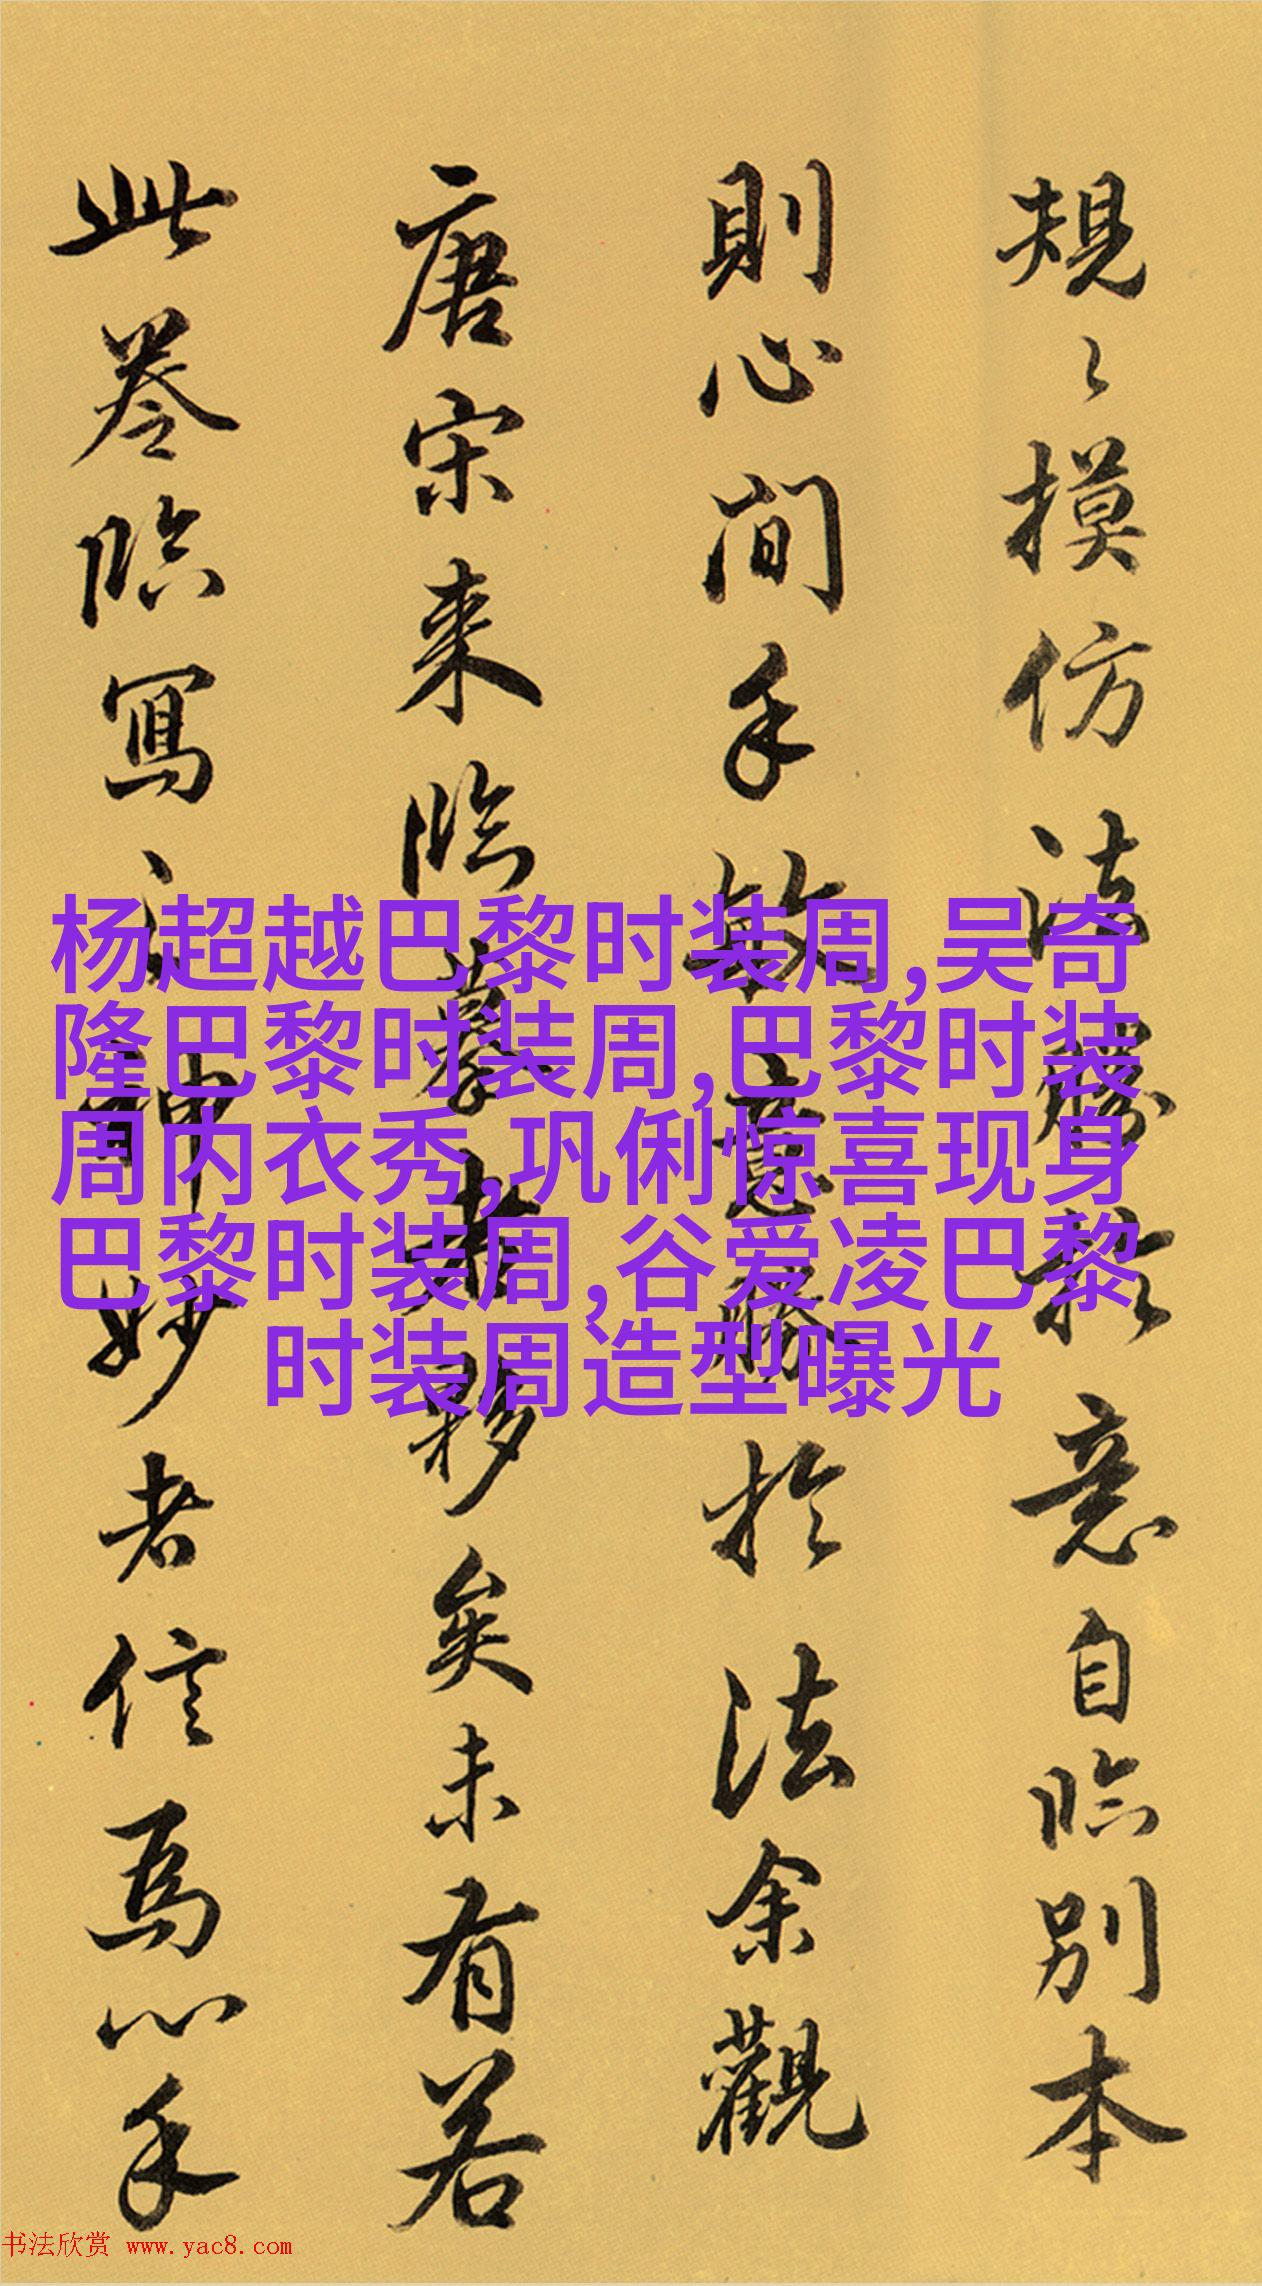 規〻摸仿法勝於意自臨别本
則心間手敏意勝於法余觀
唐宋来臨摹者夥矣未有若
此卷臨寫之神妙者信為心手
杨超越巴黎时装周,吴奇
隆巴黎时装周,巴黎时装
周内衣秀,巩俐惊喜现身
巴黎时装周,谷爱凌巴黎
时装周造型曝光
书法欣赏 www.yac8.com